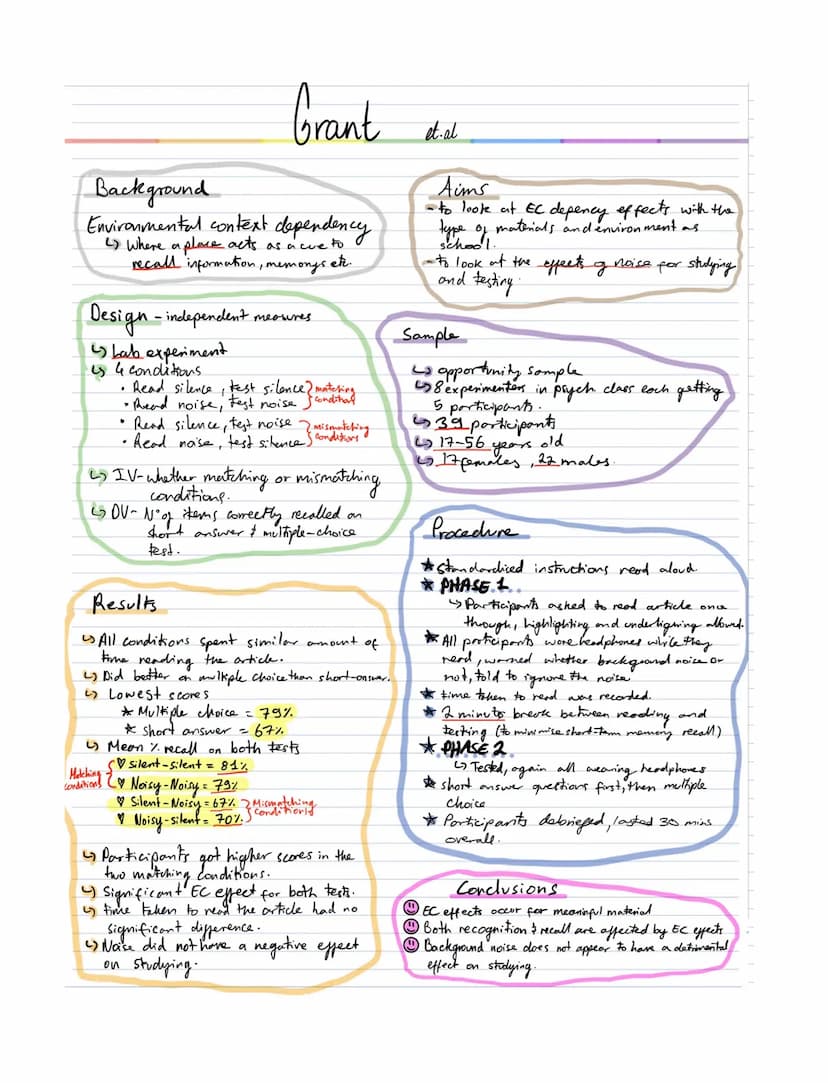 Grant et.al
Background
Environmental context dependency
↳ Where a place acts as a cue to
recall information, memorys etc.
Aims
- to look at EC depency effects with the
type of materials and environment as
school.
- to look at the effects of noise for studying
and testing.
Design - independent measures
↳ Lab experiment
↳ 4 conditions
• Read silence, test silence
• Read noise, test noise
matching
conditions
• Read silence, test noise
• Read noise, test silence
mismatching
conditions
↳ IV- whether matching or mismatching
conditions.
↳ DV- N° of items correctly recalled on
short answer & multiple-choice
test.
Sample
↳ opportunity sample
↳ 8 experimenters in psych class each getting
5 participants.
↳ 39 participants
↳ 17-56 years old
↳ 17 females, 22 males.
Results
↳ All conditions spent similar amount of
time reading the article.
↳ Did better on multiple choice than short-answer.
↳ Lowest scores
★ Multiple choice = 79%
★ short answer = 67%
↳ Mean % recall on both tests
Matching
conditions
♡ Silent-silent = 81%
♡ Noisy-Noisy = 79%
♡ Silent-Noisy = 67%
♡ Noisy-silent = 70%
Mismatching
conditions
↳ Participants got higher scores in the
two matching conditions.
↳ Significant EC effect for both tests.
↳ time taken to read the article had no
significant difference.
↳ Noise did not have a negative effect
on studying.
Procedure
★ Standardised instructions read aloud
★ PHASE 1
↳ Participants asked to read article once
through, highlighting and underligning allowed.
★ All participants wore headphones while they
read, warned whether background noise or
not, told to ignore the noise
★ time taken to read was recorded.
★ 2 minute break between reading and
testing (to minimise short-term memory recall)
★ PHASE 2
↳ Tested, again all wearing headphones
★ short answer questions first, then multiple
choice
★ Participants debriefed, lasted 30 mins
overall.
Conclusions
☺ EC effects occur for meaningful material
☺ Both recognition & recall are affected by EC effects
☺ Background noise does not appear to have a detrimental
effect on studying.